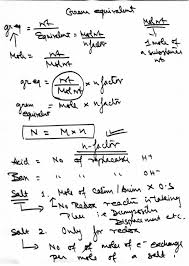 Gram equivalent
gr eq = wt / Equivalent = Mol wt / n factor
Mol wt
↓
1 mole of a substance
Mole = wt / Mol wt
gr eq = wt / Mol wt × n factor
gram equivalent = Mole × n factor
N = M × n
n factor
Acid = No of replaceable H+
Base = " " " OH-
Salt 1. Mole of Cation/Anion × O.S
↓ No Redox reaction is taking place i.e
Displacement etc.
Salt 2. Only for redox
No of moles of e- exchange
per mole of a salt.